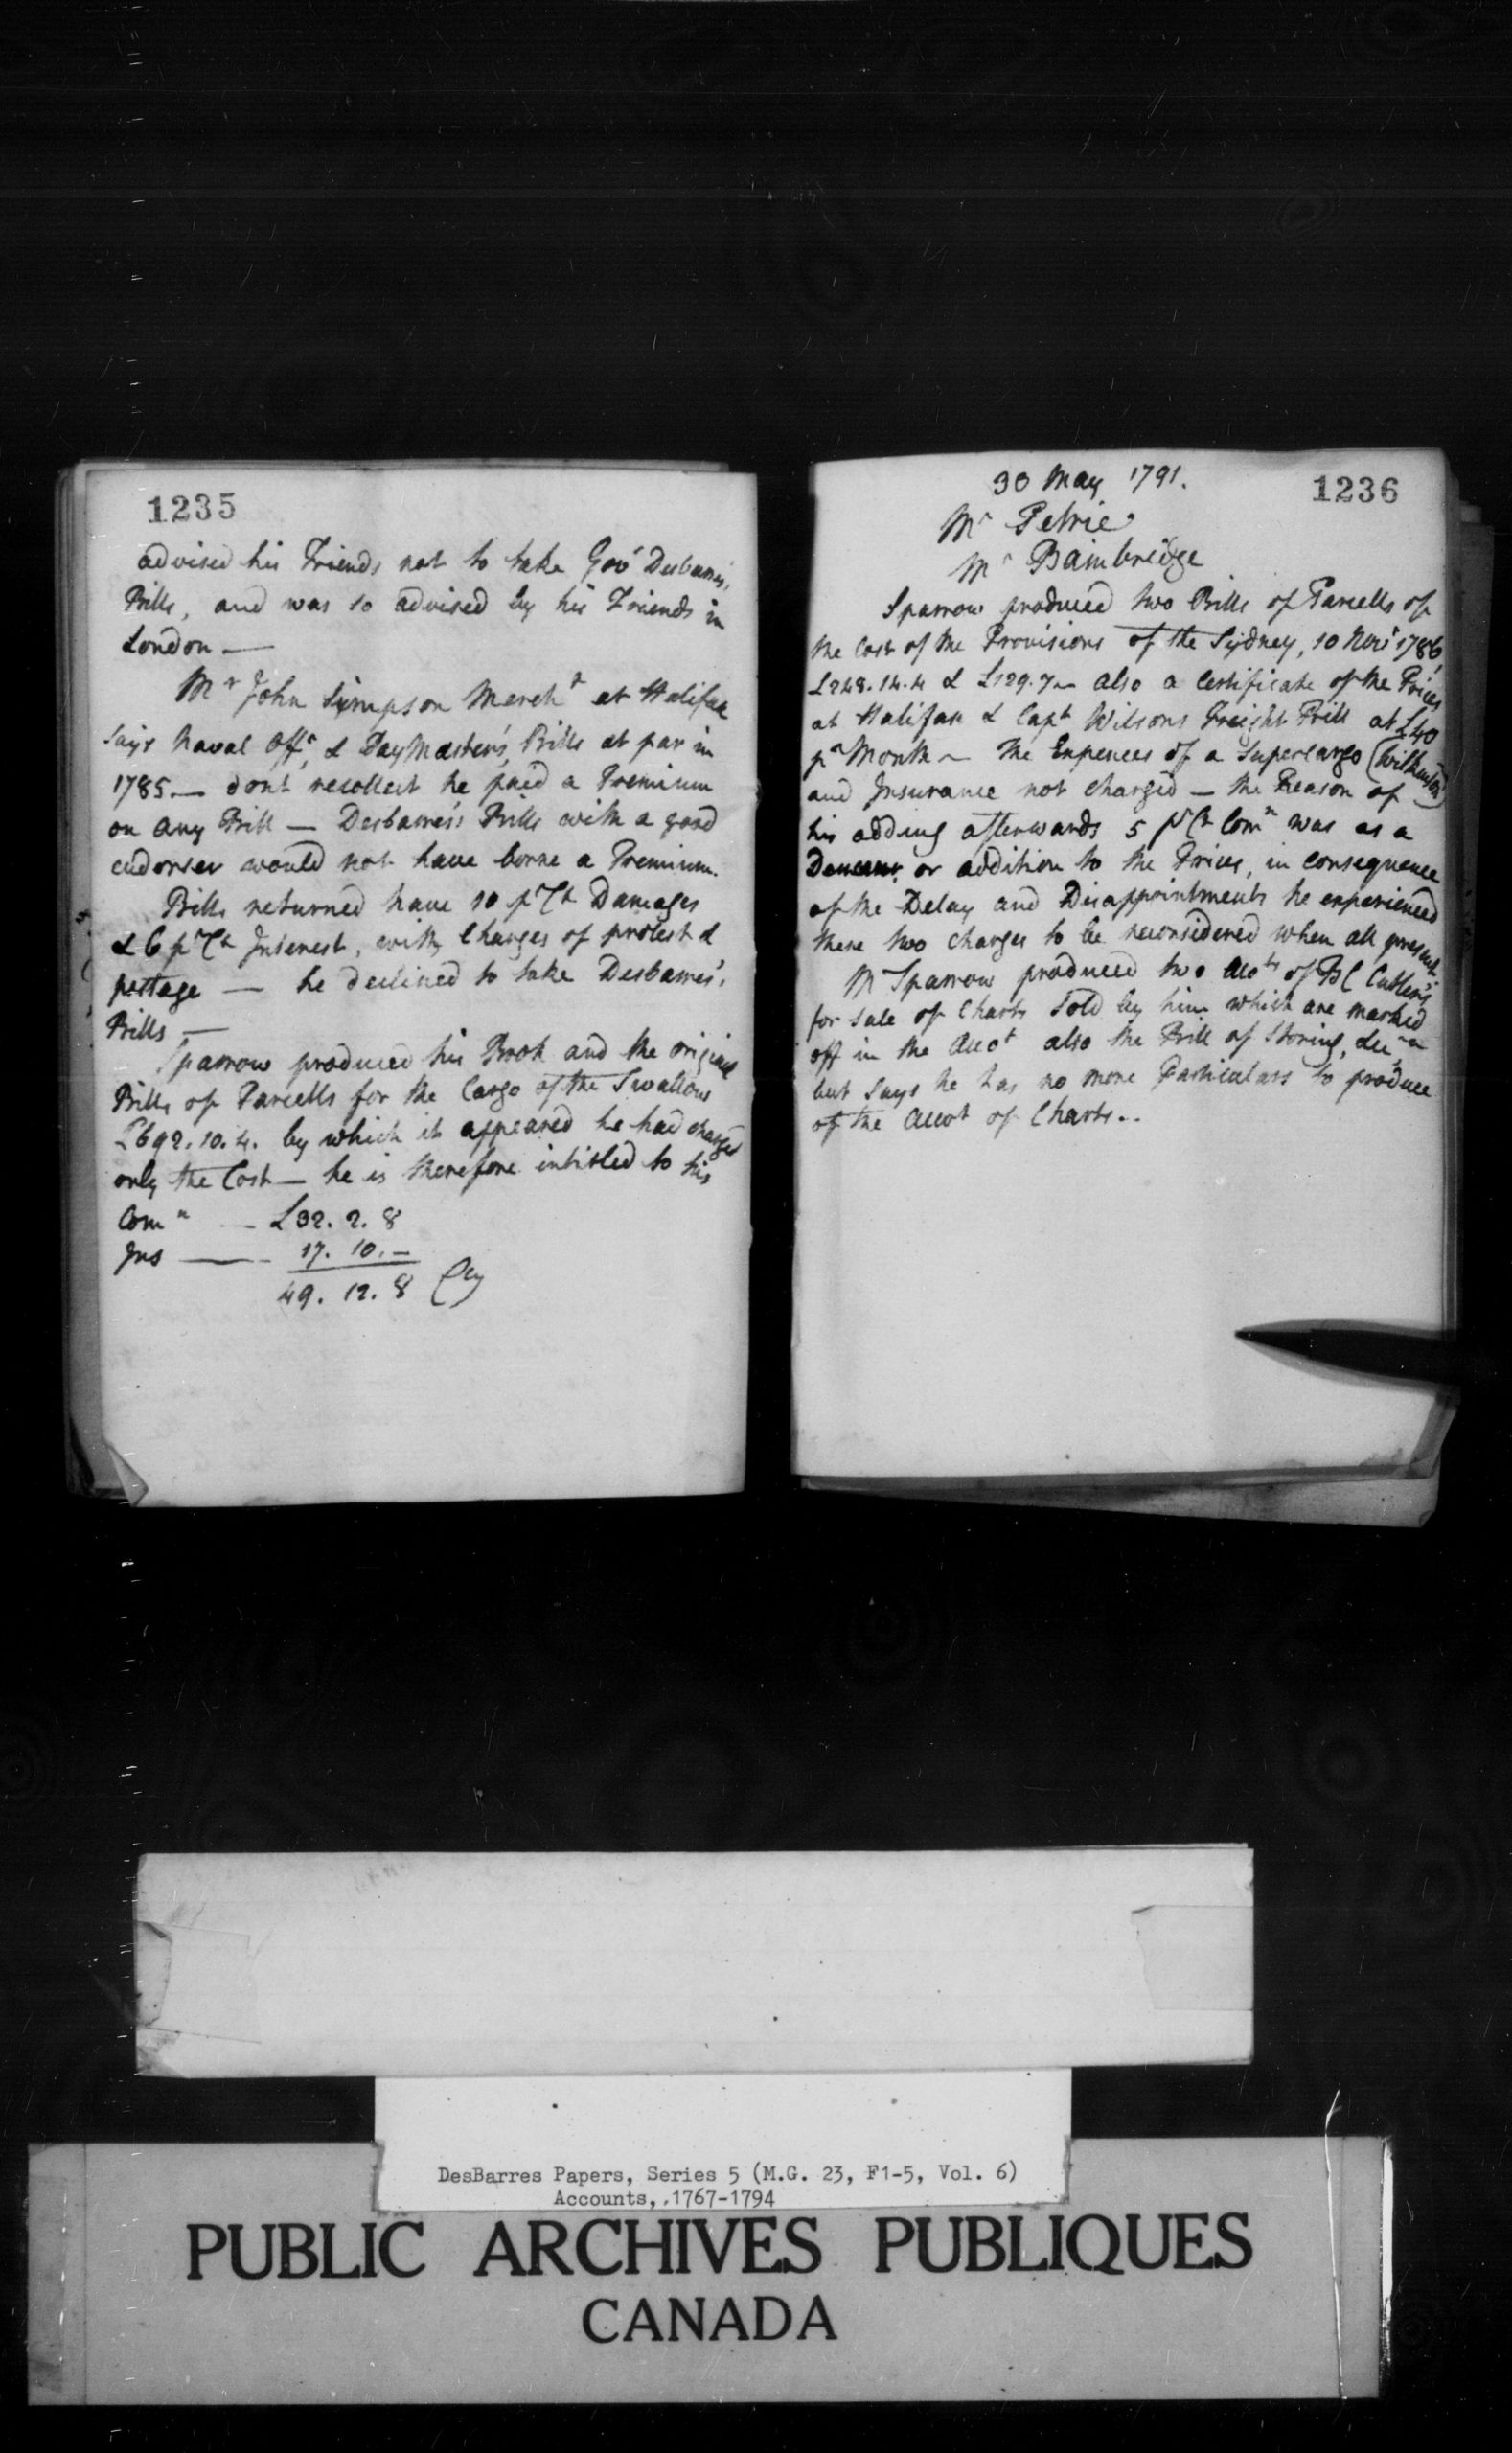 1235
advised his Friends not to take Govr Desbarres's
Bills, and was so advised by his Friends in
London —
Mr John Simpson Mercht at Halifax
says Naval Offr, & PayMaster's, Bills at par in
1785 — dont recollect he paid a Premium
on any Bill — Desbarres's Bills with a good
endorser would not have borne a Premium.
Bills returned have 10 pr Ct Damages
& 6 pr Ct Interest, with Charges of protest &
postage — he declined to take Desbarres's
Bills —
Sparrow produced his Book and the original
Bills of Parcells for the Cargo of the Swallow
£692.10.4. by which it appeared he had charged
only the Cost — he is therefore intitled to his
Comn — £32. 2. 8
Ins — 17. 10. —
49. 12. 8 Cy
1236
30 May 1791.
Mr Petrie
Mr Bainbridge
Sparrow produced two Bills of Parcells of
the Cost of the Provisions of the Sydney, 10 Novr 1786
£248.14.4 & £129.7 — also a Certificate of the Prices
at Halifax & Capt Wilsons Freight Bill at £40
pr Month — The Expences of a Supercargo (Wilkinson)
and Insurance not charged — the Reason of
his adding afterwards 5 pr Ct Comn was as a
or addition to the Prices, in consequence
of the Delay and Disappointments he experienced
these two charges to be reconsidered when all present.
Mr Sparrow produced two Accots of B C Cutler's
for Sale of Charts Sold by him which are marked
off in the Accot also the Bill of Storing, &c —
but Says he has no more Particulars to produce
of the Accot of Charts..
DesBarres Papers, Series 5 (M.G. 23, F1-5, Vol. 6)
Accounts, 1767-1794
PUBLIC ARCHIVES PUBLIQUES
CANADA